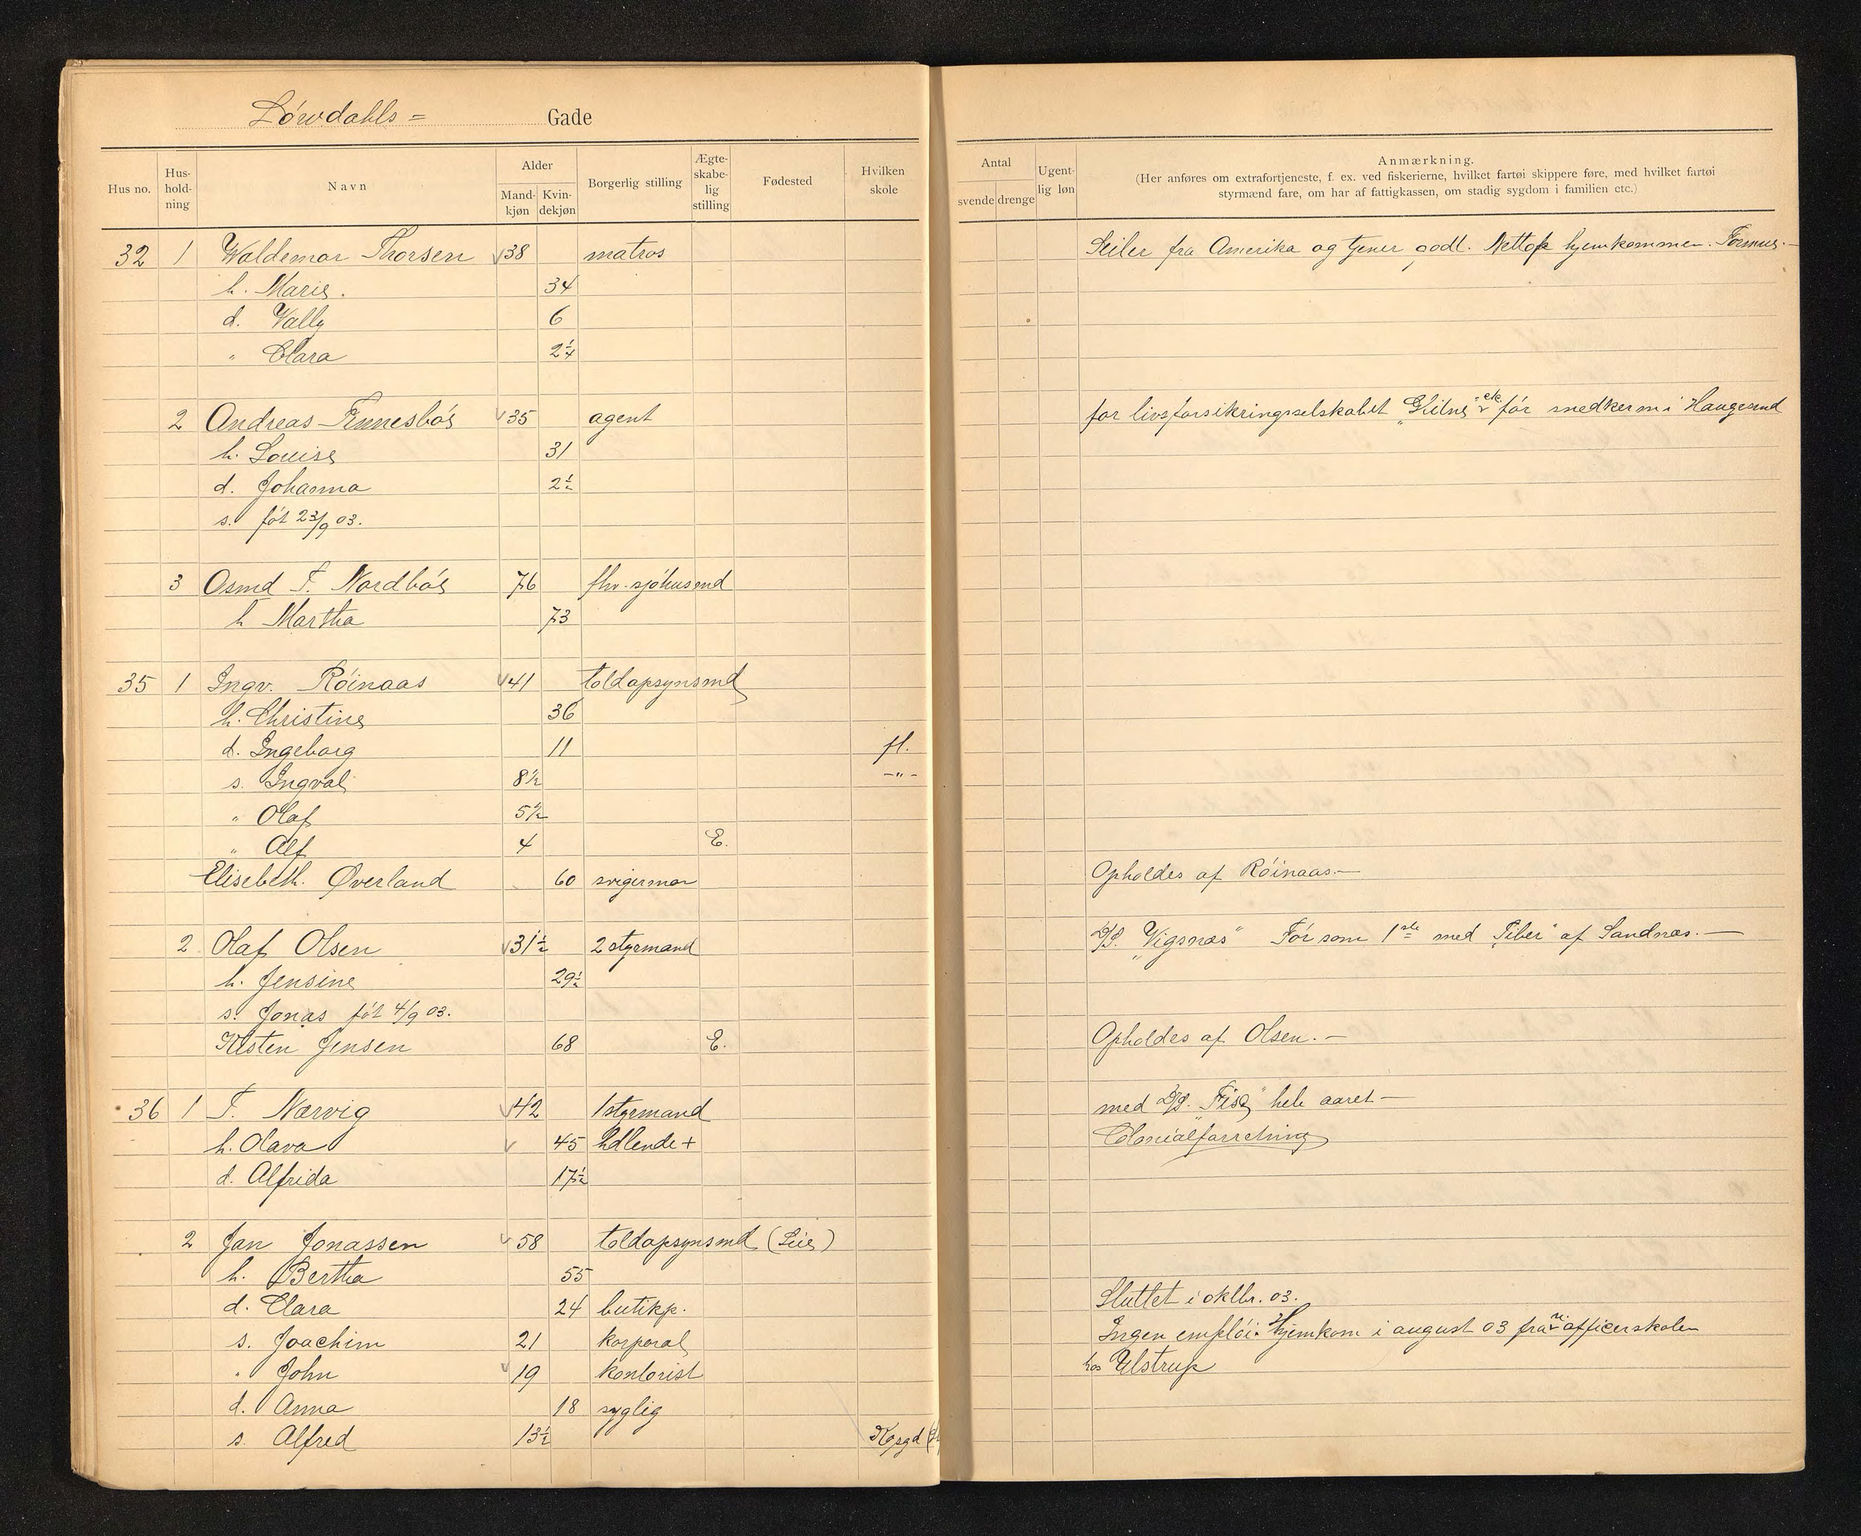 Lövdahls = Gade
Hus no. Hus-hold-ning Navn Alder Mand-kjøn Kvin-dekjøn Borgerlig stilling Ægte-skabe-lig stilling Fødested Hvilken skole
Antal svende drenge Ugent-lig løn Anmærkning.
(Her anføres om extrafortjeneste, f. ex. ved fiskerierne, hvilket fartøi skippere føre, med hvilket fartøi
styrmænd fare, om har af fattigkassen, om stadig sygdom i familien etc.)
32 1 Waldemar Thorsen 38 matros Seiler fra Amerika og tjener godt. Nettop hjemkommen. Formue. –
h. Marie. 34
d. Vally 6
" Clara 2 1/4
2 Andreas Finnesbös 35 agent for livsforsikringsselskabet etc för snedker i Haugesund
h. Louise 31
d. Johanna 2 1/2
s. föt 23/9 03.
3 Osmd T. Nordbös 76 fhv. sjöhusmd
h Martha 73
35 1 Ingv. Röinaas 41 toldopsynsmd
h. Christine 36
d. Ingeborg 11 fl.
s. Ingval 8 1/2 –"–
" Olaf 5 1/2
" Alf 4 E.
Elisebeth. Øverland 60 svigermor Opholdes af Röinaas. –
2 Olaf Olsen 31 1/2 2 styrmand D/S. "Vigsnæs" För som 1ste med "Tiber" af Sandnæs. –
h. Jensine 29 1/2
s. Jonas föt 4/9 03.
Kisten Jensen 68 E. Opholdes af Olsen. –
36 1 T. Nærvig 42 1 styrmand med D/S. hele aaret –
h. Olava 45 hdlende + Colonialforretning
d. Alfrida 17 1/2
2 Jan Jonassen 58 toldopsynsmd
h. Bertha 55
d. Clara 24 butikp. Sluttet i oktbr. 03.
s. Joachim 21 korporal Ingen emplöi. Hjemkom i august 03 fra u. officerskolen
" John 19 kontorist hos Ulstrup
d. Anna 18 syglig
s. Alfred 13 1/2